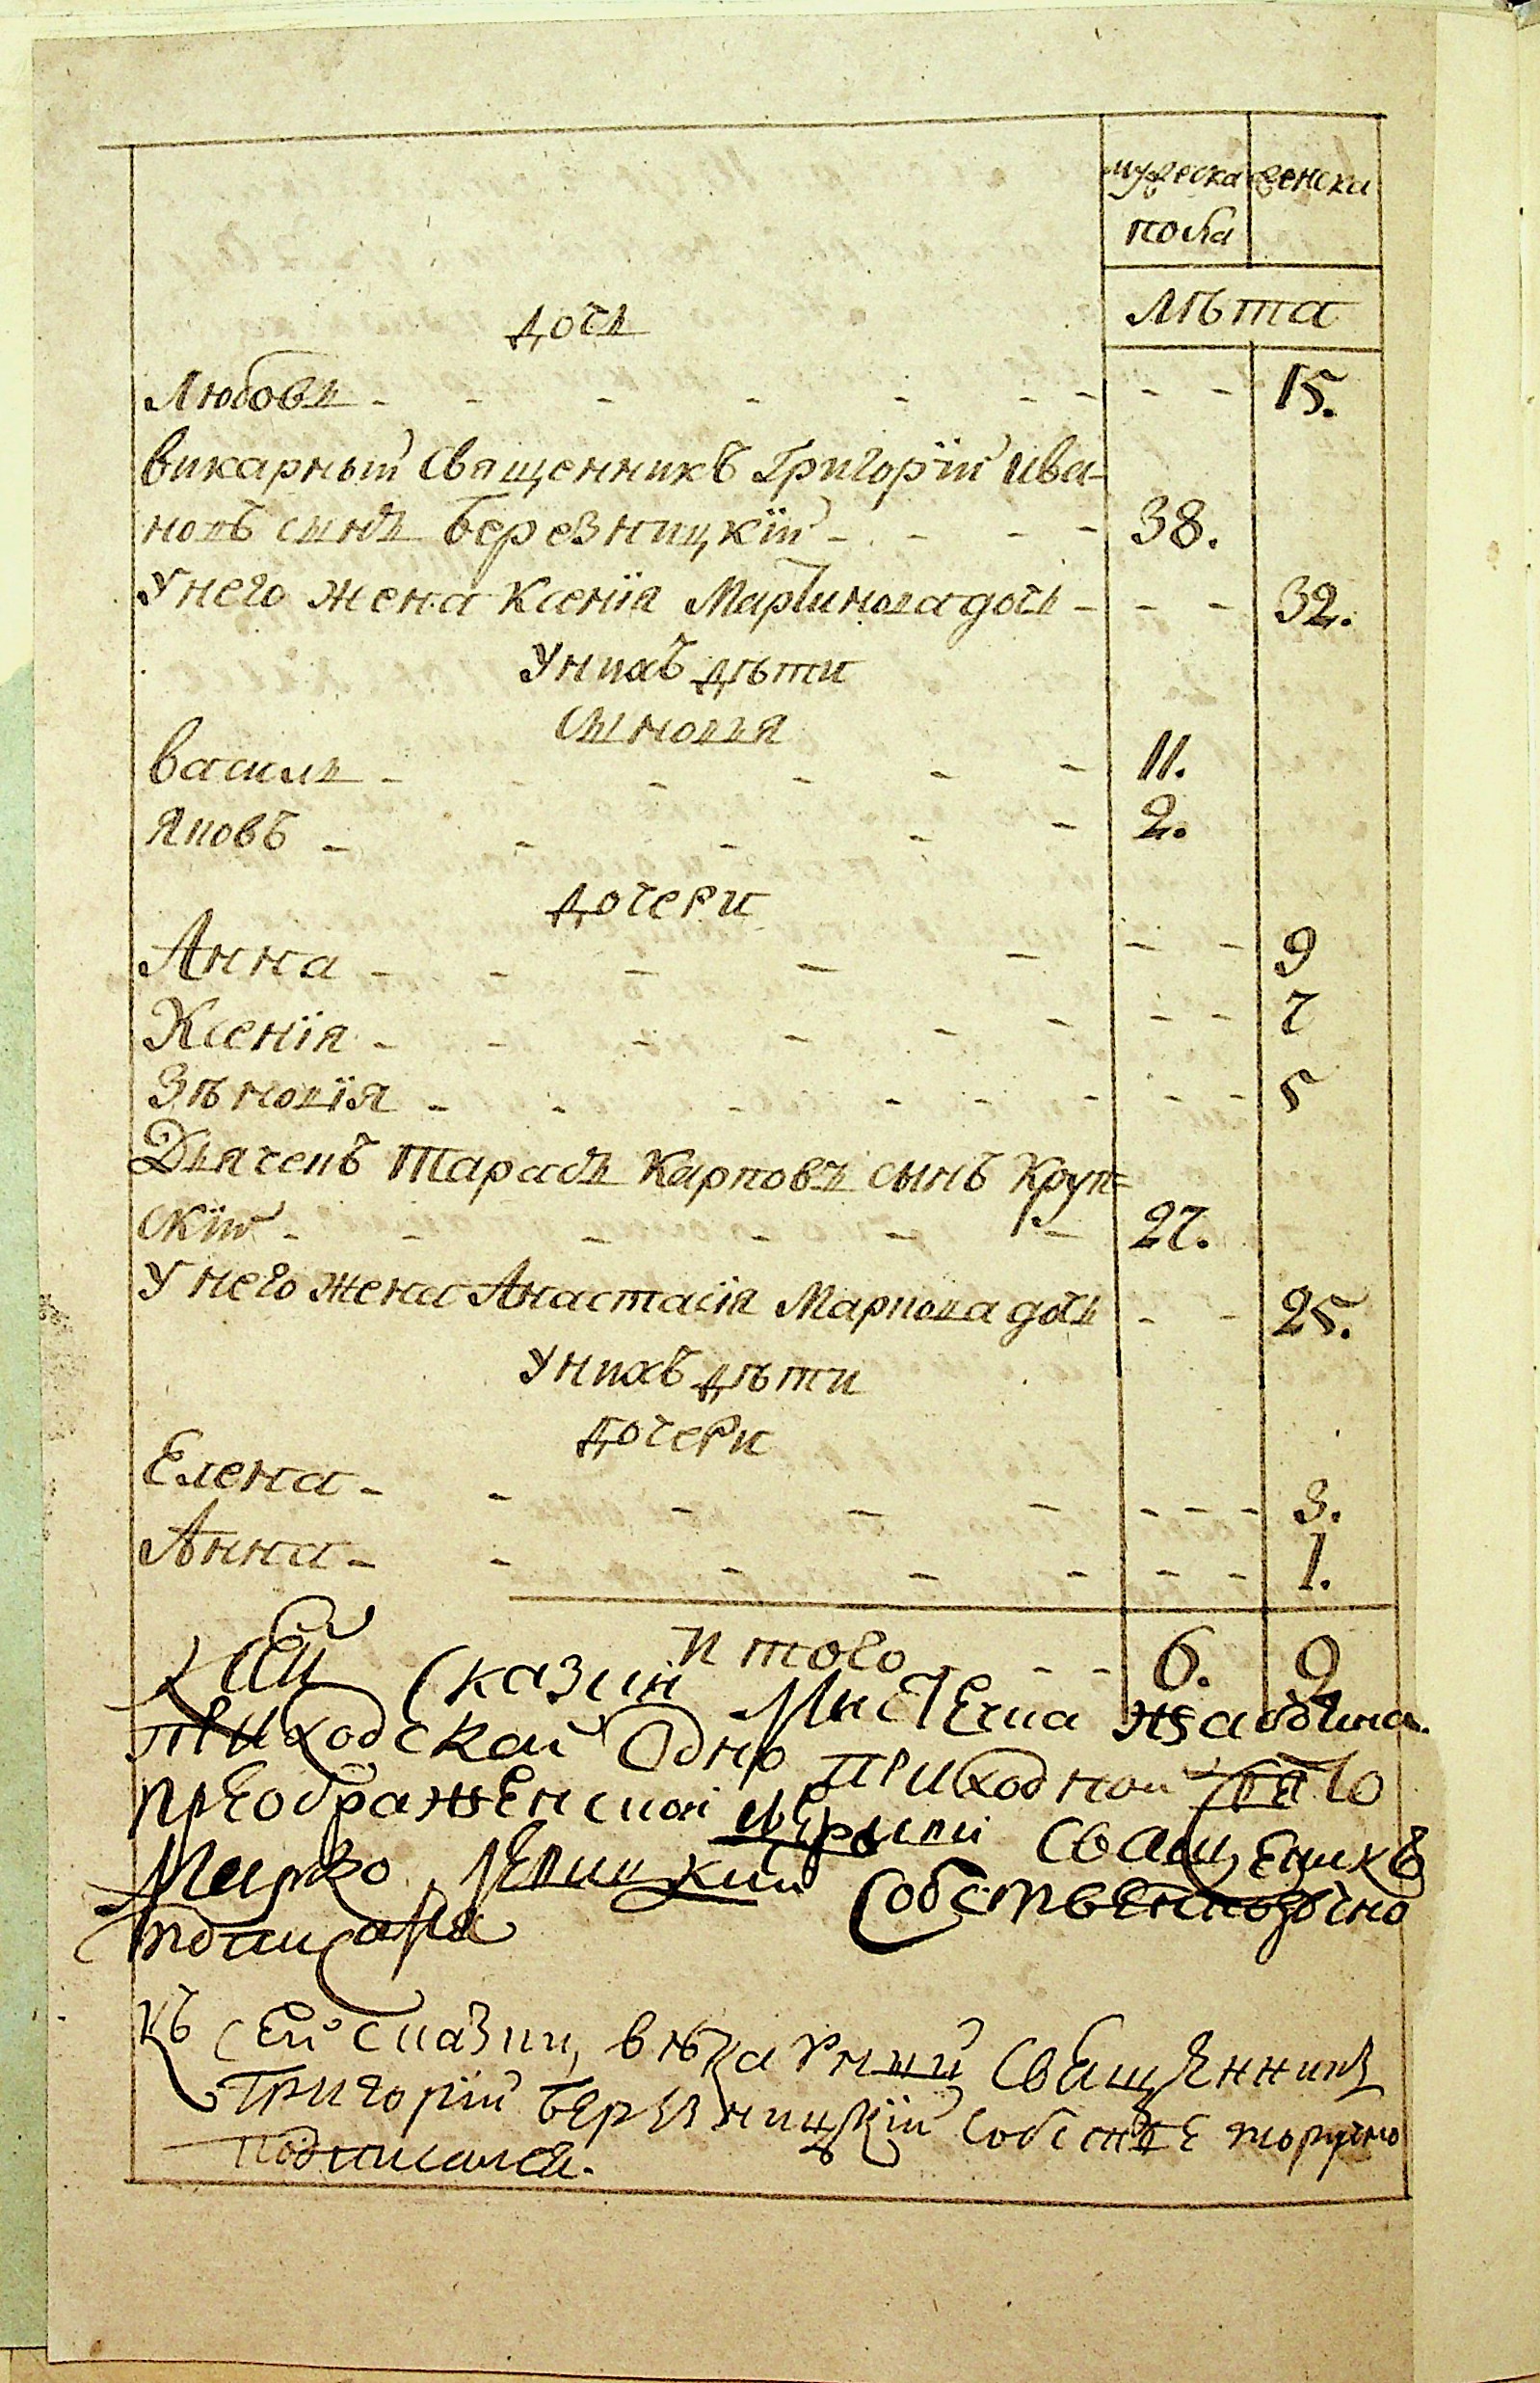 мужеска женска
пола
лѣта
дочь
Любовь - - - - - - - - 15.
викарный Священникъ Григорїй ива-
новъ сынъ березницкїй - - - - 38.
У него жена Ксенїя Мартинова дочь - - - 32.
У нихъ дѣти
Сыновья
василь - - - - - - 11.
Яковъ - - - - - 2.
дочери
Анна - - - - - - - 9
Ксенїя - - - - - - - - 7
Зѣновїя - - - - - - - - 5
Дьячекъ Тарасъ Карповъ сынъ Круп=
скїй - - - - - - 27.
У него жена Анастасїя Маркова дочь - - 25.
У нихъ дѣти
дочери
Елена - - - - - - - - 3.
Анна - - - - - - - 1.
итого - - - 6. 9
К сей сказки Мистечка
приходской Одно приходной
преображенской церкви Священикъ
Марко Левицкий Собственноручно
подписался
къ сей сказки, викарный Священникъ
Григорїй Березницкїй собственоручно
подписался.